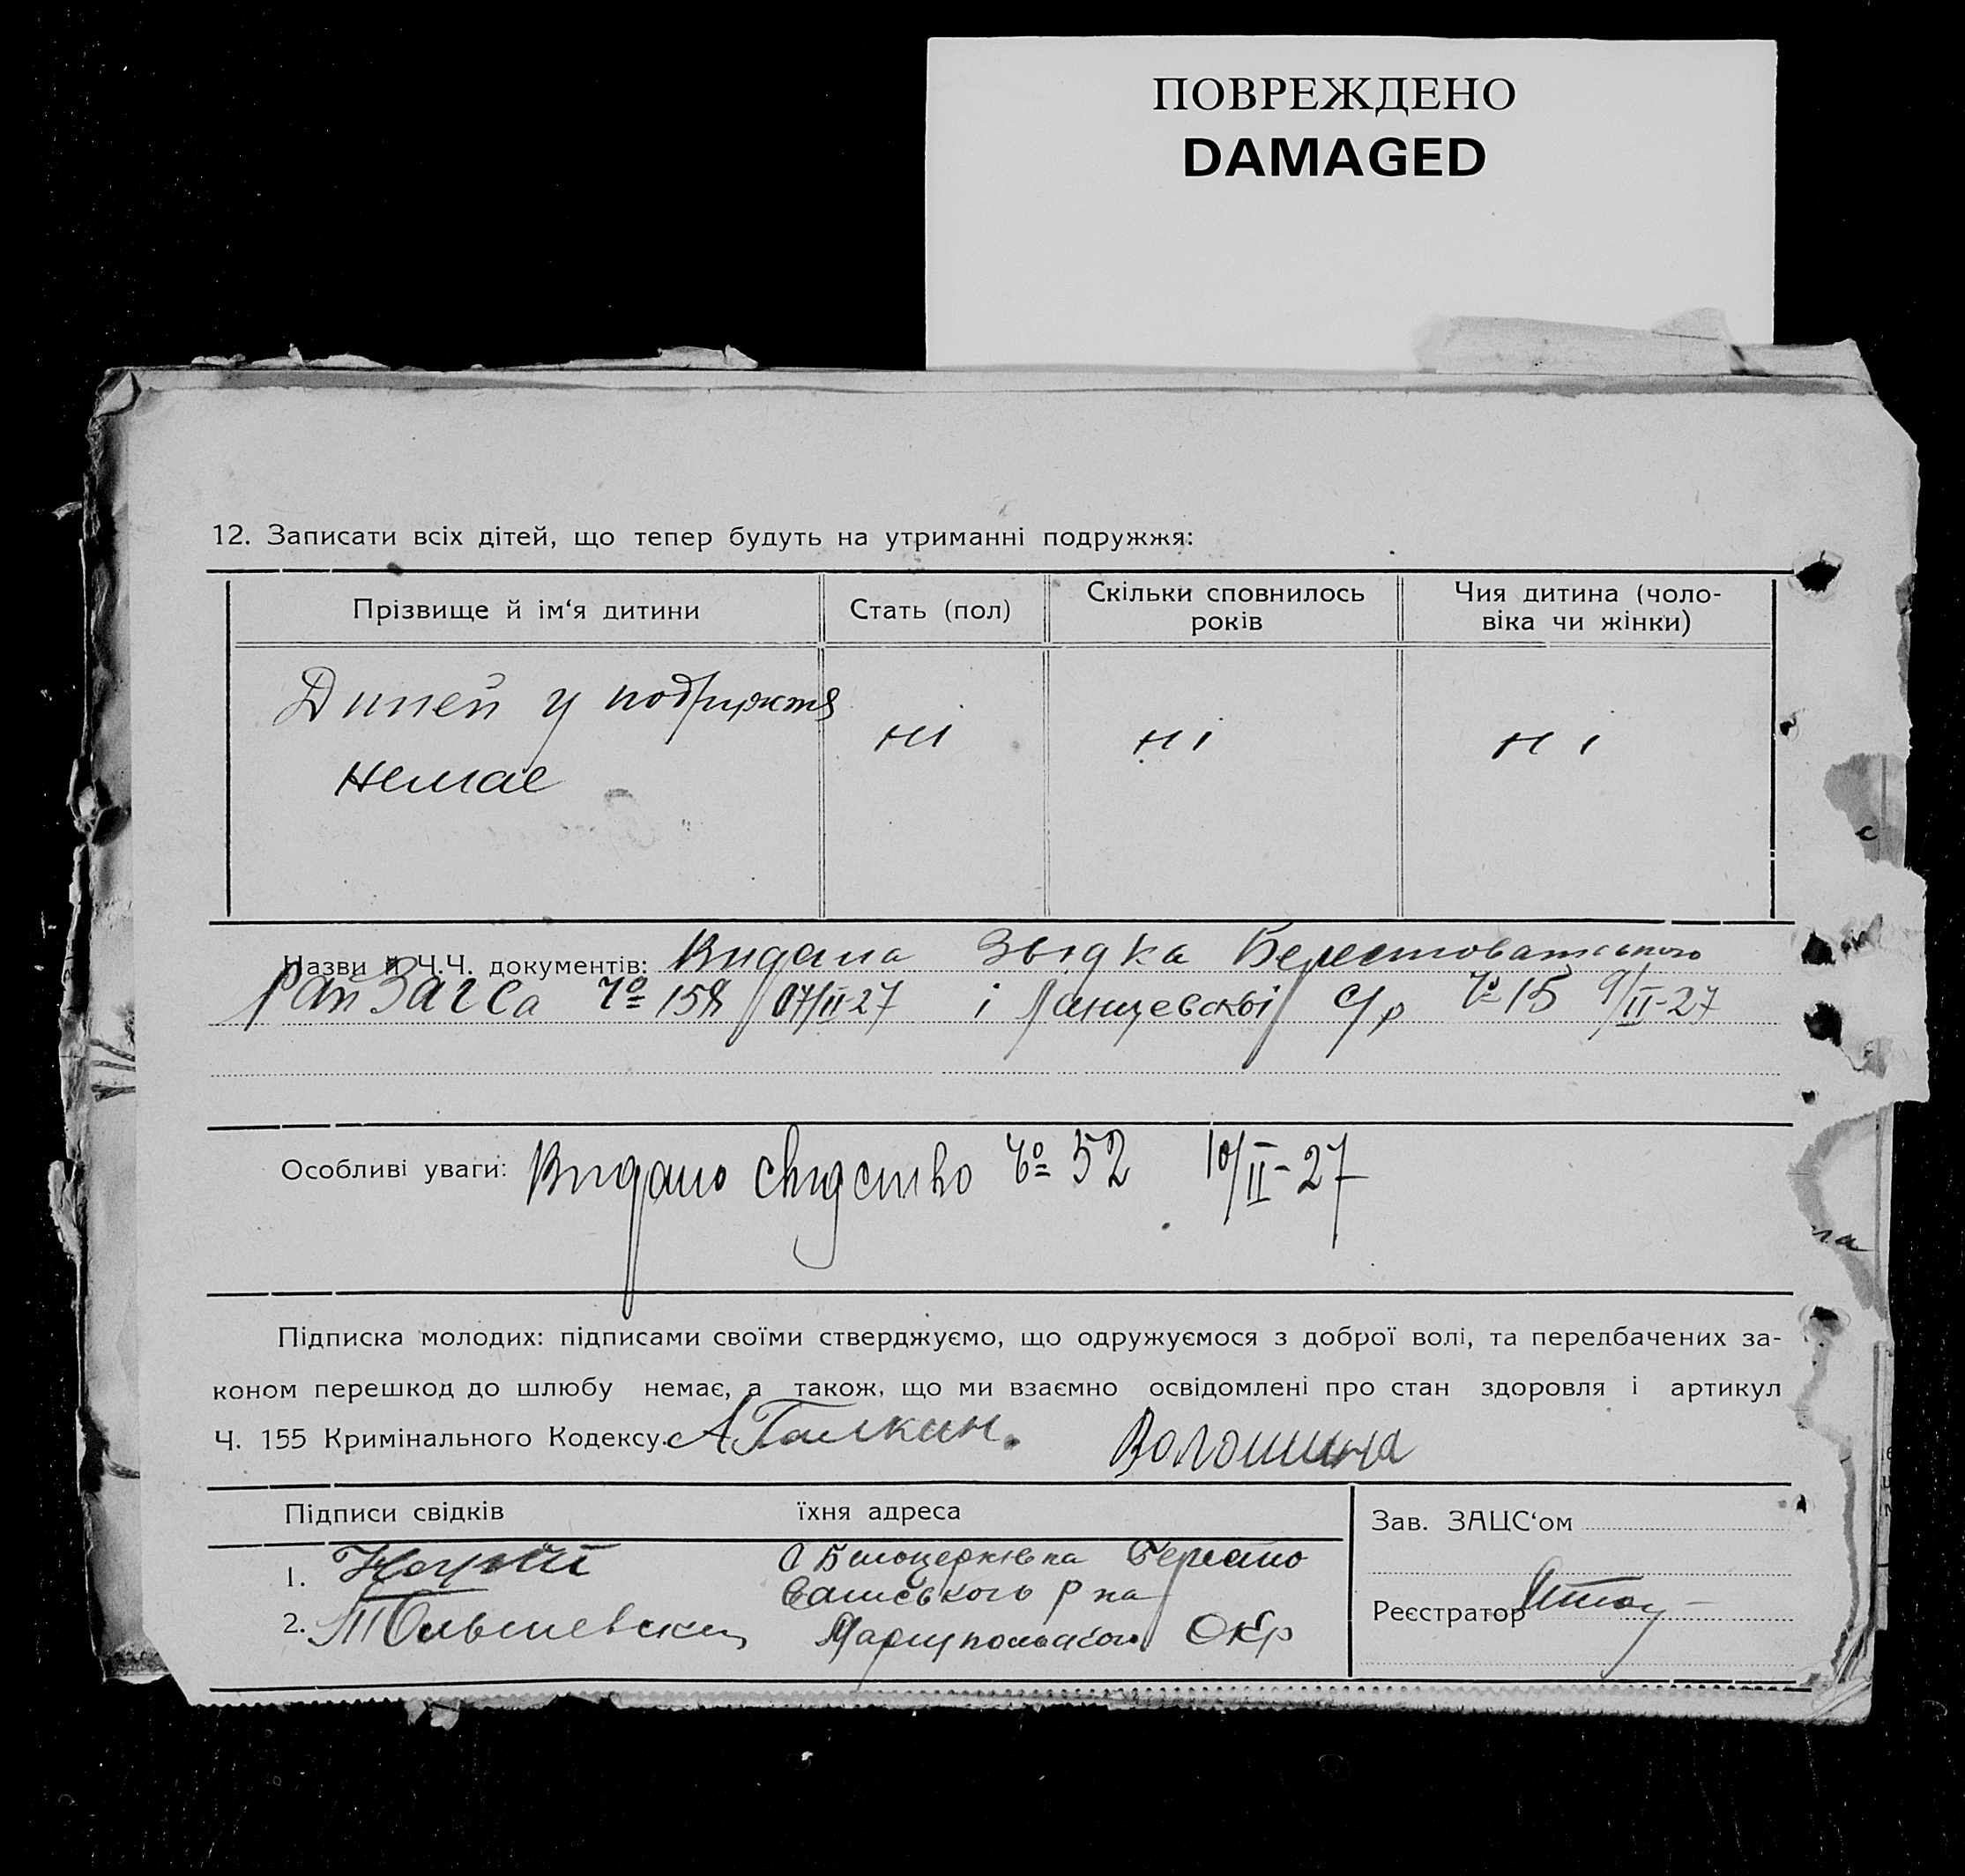 ПОВРЕЖДЕНО
DAMAGED
12. Записати всіх дітей, що тепер будуть на утриманні подружжя:
Прізвище й ім‘я дитини
Стать (пол)
Скільки сповнилось
років
Чия дитина (чоло-
віка чи жінки)
Дитей у подружтя
немае
ні
ні
ні
Назви й Ч.Ч. документів: Видана Звідка Берестоватського
райЗагса Чо 158 07/II-27 і с/р Чо 15 9/II-27
Особливі уваги: Видано свидство Чо 52 10/II-27
Підписка молодих: підписами своїми стверджуємо, що одружуємося з доброї волі, та передбачених за-
коном перешкод до шлюбу немає, а також, що ми взаємно освідомлені про стан здоровля і артикул
Ч. 155 Кримінального Кодексу. АГалкин. Волошина
Підписи свідків
їхня адреса
Зав. ЗАЦС‘ом
1.
С Билоцерківка Берესто
ватського р на
2.
Мариупольского Окр
Реєстратор